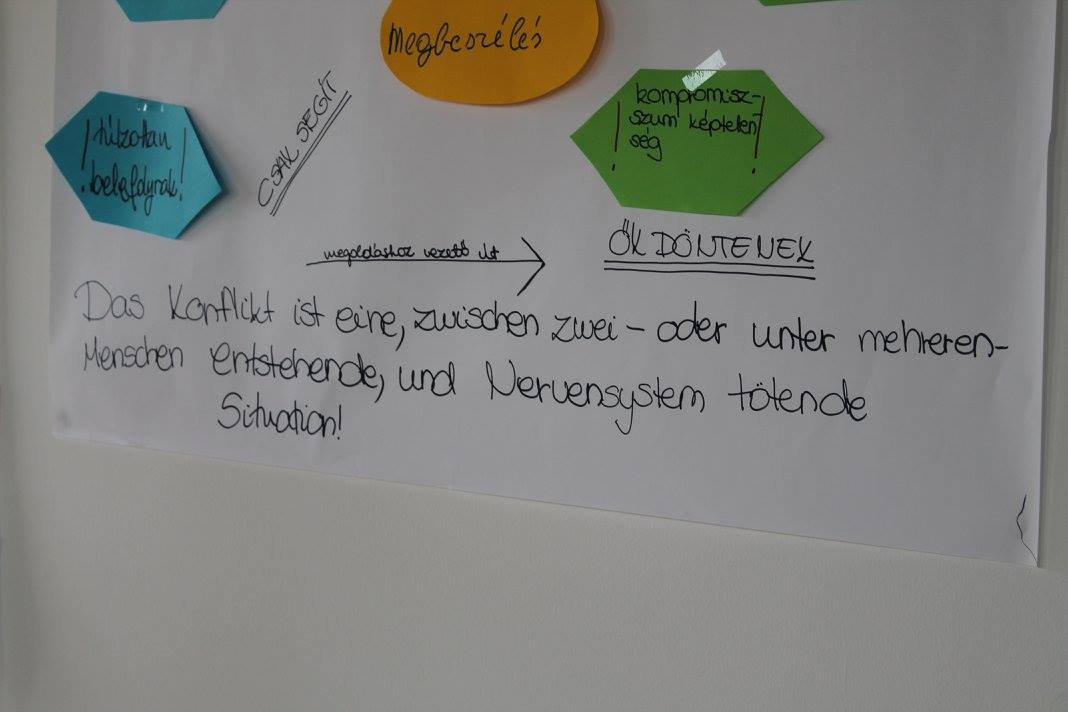 Megbeszélés
! túlzottan !
befolynak
CSAK SEGÍT
! kompromisz- !
szum képtelen
ség
megoldáshoz vezető út
ŐK DÖNTENEK
Das Konflikt ist eine, zwischen zwei - oder unter mehreren-
Menschen entstehende, und Nervensystem tötende
Situation!